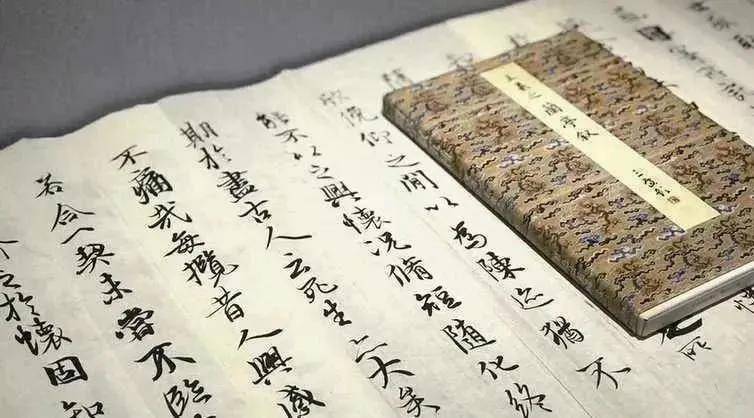 王羲之蘭亭敘
之所
欣俛仰之閒以為陳迹猶不
能不以之興懷況脩短隨化終
期於盡古人云死生亦大矣
不痛哉每攬昔人興感
若合一契未嘗不臨
之於懷固知